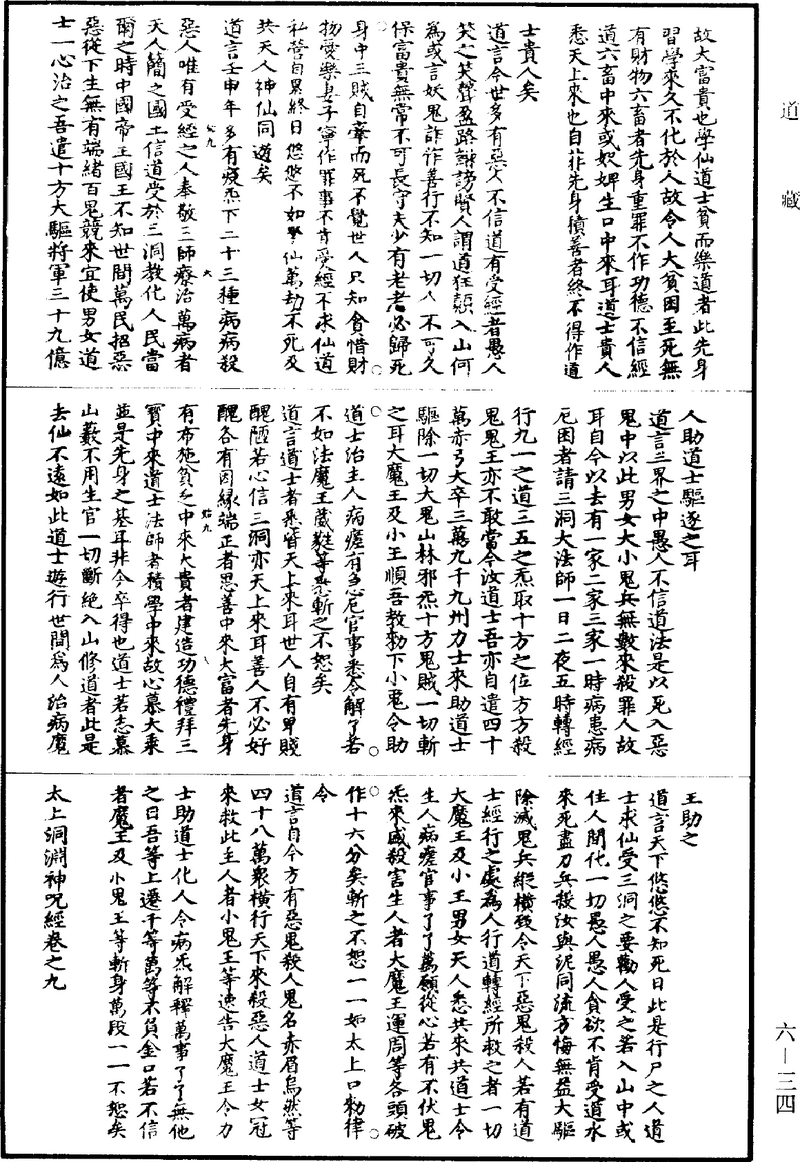 道藏
故大富貴也學仙道士貧而樂道者此先身
習學來久不化於人故令人大貧困至死無
有財物六畜者先身重罪不作功德不信經
道六畜中來或奴婢生口中來耳道士貴人
悉天上來也自非先身積善者終不得作道
士貴人矣
道言今世多有惡人不信道有受經者愚人
笑之笑聲盈路誹謗賢人謂道狂顛入山何
為或言妖鬼詐作善行不知一切人不可久
保富貴無常不可長守夫少有老老必歸死
身中三賊自牽而死不覺世人只知貪惜財
物愛樂妻子寧作罪事不肯受經不求仙道
私營自累終日悠悠不如學仙萬劫不死及
共天人神仙同遊矣
道言壬申年多有疫炁下二十三種病病殺
惡人唯有受經之人奉敬三師療治萬病者
天人蕳之國土信道受於三洞教化人民當
爾之時中國帝王國王不知世間萬民招惡
惡從下生無有端緒百鬼競來宜使男女道
士一心治之吾遣十方大驅將軍三十九億
人助道士驅逐之耳
道言三界之中愚人不信道法是以死入惡
鬼中以此男女大小鬼兵無數來殺罪人故
耳自今以去有一家二家三家一時病患病
厄困者請三洞大法師一日二夜五時轉經
行九一之道三五之炁取十方之位方方殺
鬼鬼王亦不敢當令汝道士吾亦自遣四十
萬赤弓大卒三萬九千九州力士來助道士
驅除一切大鬼山林邪炁十方鬼賊一切斬
之耳大魔王及小王順吾教勑下小鬼令助
道士治主人病瘥有急厄官事悉令解了若
不如法魔王葳甤等悉斬之不恕矣
道言道士者悉皆天上來耳世人自有卑賤
醜陋若心信三洞亦天上來耳善人不必好
醜各有因緣端正者忍善中來大富者先身
有布施貧乏中來大貴者建造功德禮拜三
寶中來道士法師者積學中來故心慕大乘
並是先身之基耳非今卒得也道士若志慕
山藪不用生官一切斷絕入山修道者此是
去仙不遠如此道士遊行世間為人治病魔
王助之
道言天下悠悠不知死日此是行尸之人道
士求仙受三洞之要勸人受之若入山中或
住人間化一切愚人愚人貪欲不肯受道水
來死盡刀兵殺汝與泥同流方悔無益大驅
除滅鬼兵縱橫致令天下惡鬼殺人若有道
士經行之處為人行道轉經所救之者一切
大魔王及小王男女天人悉共來共道士令
生人病瘥官事了了萬願從心若有不伏鬼
炁來國殺害生人者大魔王運周等各頭破
作十六分矣斬之不恕一一如太上口勑律
令
道言自今方有惡鬼殺人鬼名赤眉烏然等
四十八萬衆橫行天下來殺惡人道士女冠
來救此主人者小鬼王等速告大魔王令力
士助道士化人令病炁解釋萬事了了無他
之曰吾等上遷千等萬等不負金口若不信
者魔王及小鬼王等斬身萬段一一不恕矣
太上洞淵神呪經卷之九
六—三四